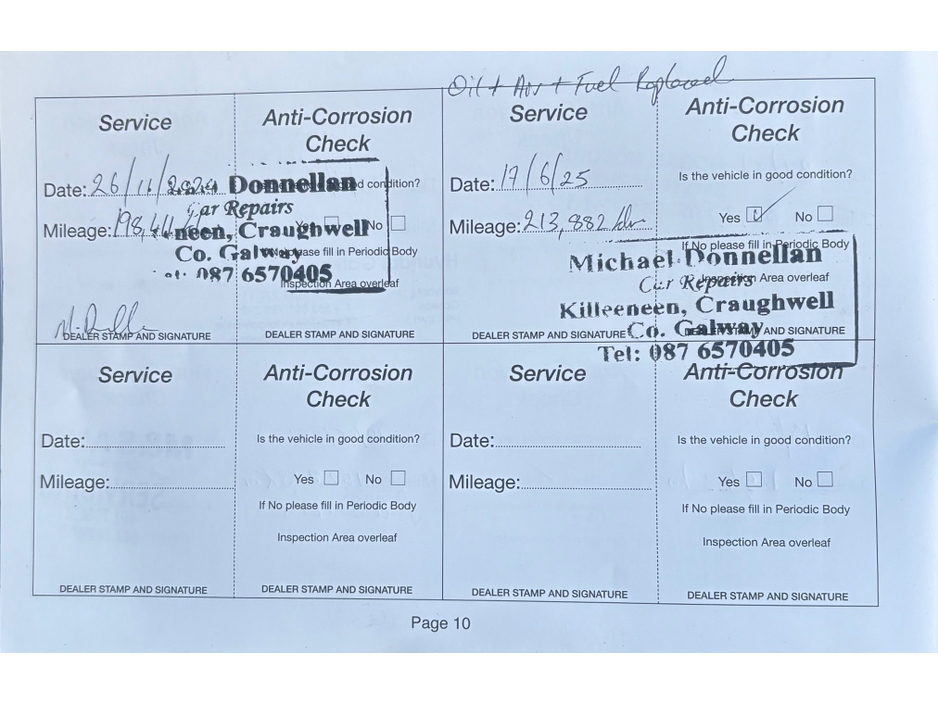 Oil + Air + Fuel Replaced
Service
Anti-Corrosion
Check
Date: 26/11/2024
Mileage: 198,
Donnellan
Car Repairs
neen, Craughwell
Co. Galway
087 6570405
d condition?
No
please fill in Periodic Body
Inspection Area overleaf
DEALER STAMP AND SIGNATURE
DEALER STAMP AND SIGNATURE
Service
Anti-Corrosion
Check
Date: 17/6/25
Is the vehicle in good condition?
Mileage: 213,882 km
Yes ✓ No
If No please fill in Periodic Body
Inspection Area overleaf
Michael Donnellan
Car Repairs
Killeeneen, Craughwell
Co. Galway
Tel: 087 6570405
DEALER STAMP AND SIGNATURE
AND SIGNATURE
Service
Anti-Corrosion
Check
Date:
Is the vehicle in good condition?
Mileage:
Yes No
If No please fill in Periodic Body
Inspection Area overleaf
DEALER STAMP AND SIGNATURE
DEALER STAMP AND SIGNATURE
Service
Anti-Corrosion
Check
Date:
Is the vehicle in good condition?
Mileage:
Yes No
If No please fill in Periodic Body
Inspection Area overleaf
DEALER STAMP AND SIGNATURE
DEALER STAMP AND SIGNATURE
Page 10